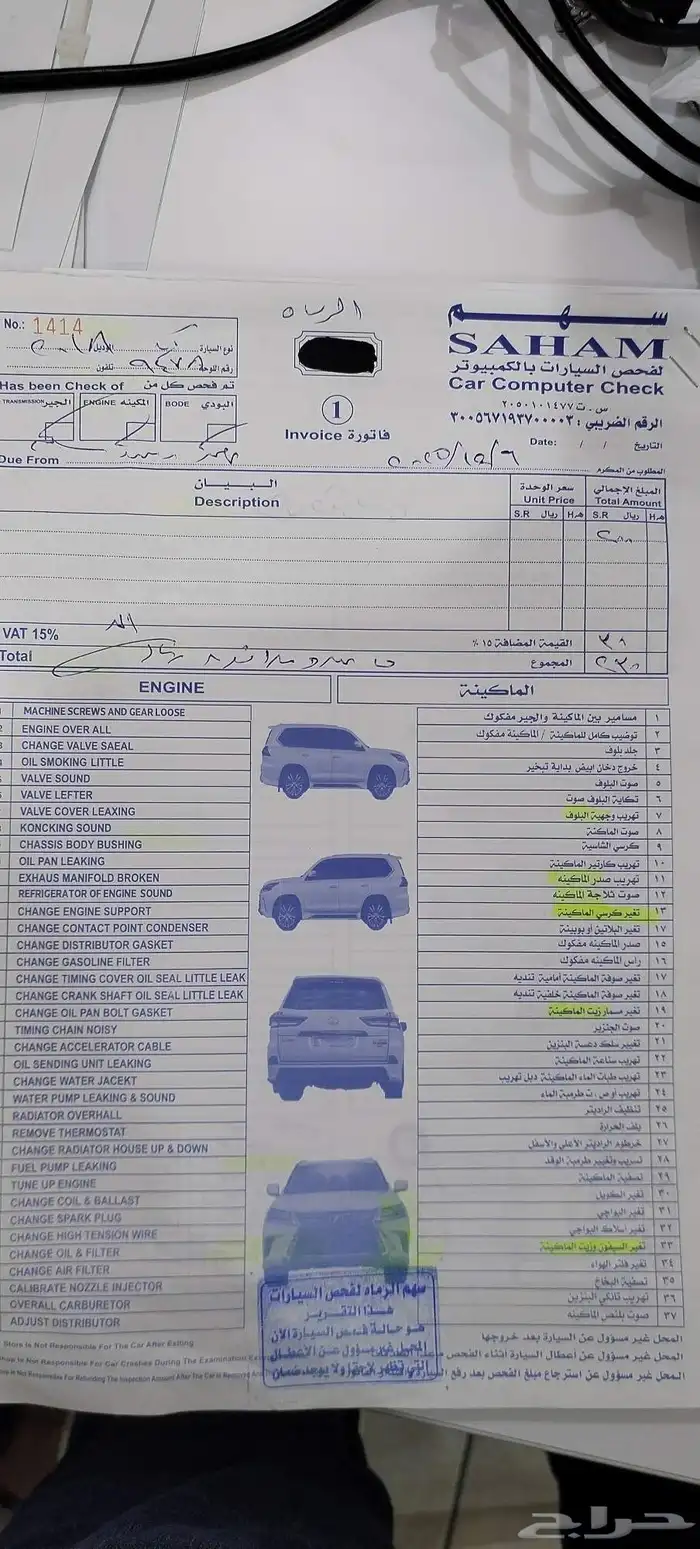 No.: 1414
نوع السيارة
الموديل
رقم اللوحة
تلفون
Has been Check of تم فحص كل من
TRANSMISSION الجير
ENGINE المكينه
BODE البودي
Due From
1
Invoice فاتورة
سهم
SAHAM
لفحص السيارات بالكمبيوتر
Car Computer Check
س . ت ٢٠٥٠١٠١٤٧٧
الرقم الضريبي : ٣٠٠٥٦٧١٩٣٧٠٠٠٠٣
Date: / / التاريخ
المطلوب من المكرم
البيان
Description
سعر الوحدة
Unit Price
S.R ريال هـ H
المبلغ الإجمالي
Total Amount
S.R ريال هـ H
٢٠٠
VAT 15%
القيمة المضافة ١٥ ٪
٣٠
Total
المجموع
٢٣٠
ENGINE
الماكينة
MACHINE SCREWS AND GEAR LOOSE
ENGINE OVER ALL
CHANGE VALVE SAEAL
OIL SMOKING LITTLE
VALVE SOUND
VALVE LEFTER
VALVE COVER LEAXING
KONCKING SOUND
CHASSIS BODY BUSHING
OIL PAN LEAKING
EXHAUS MANIFOLD BROKEN
REFRIGERATOR OF ENGINE SOUND
CHANGE ENGINE SUPPORT
CHANGE CONTACT POINT CONDENSER
CHANGE DISTRIBUTOR GASKET
CHANGE GASOLINE FILTER
CHANGE TIMING COVER OIL SEAL LITTLE LEAK
CHANGE CRANK SHAFT OIL SEAL LITTLE LEAK
CHANGE OIL PAN BOLT GASKET
TIMING CHAIN NOISY
CHANGE ACCELERATOR CABLE
OIL SENDING UNIT LEAKING
CHANGE WATER JACEKT
WATER PUMP LEAKING & SOUND
RADIATOR OVERHALL
REMOVE THERMOSTAT
CHANGE RADIATOR HOUSE UP & DOWN
FUEL PUMP LEAKING
TUNE UP ENGINE
CHANGE COIL & BALLAST
CHANGE SPARK PLUG
CHANGE HIGH TENSION WIRE
CHANGE OIL & FILTER
CHANGE AIR FILTER
CALIBRATE NOZZLE INJECTOR
OVERALL CARBURETOR
ADJUST DISTRIBUTOR
١ مسامير بين الماكينة والجير مفكوك
٢ توضيب كامل للماكينة / الماكينة مفكوك
٣ جلد بلوف
٤ خروج دخان ابيض بداية تبخير
٥ صوت البلوف
٦ تكاية البلوف صوت
٧ تهريب وجهية البلوف
٨ صوت الماكنة
٩ كرسي الشاسية
١٠ تهريب كارتير الماكينة
١١ تهريب صدر الماكينه
١٢ صوت ثلاجة الماكينه
١٣ تغير كرسي الماكينة
١٧ تغير البلاتين أو بوبينة
١٥ صدر الماكينه مفكوك
١٦ راس الماكينه مفكوك
١٧ تغير صوفة الماكينة أمامية تنديه
١٨ تغير صوفة الماكينة خلفية تنديه
١٩ تغير مسمار زيت الماكينة
٢٠ صوت الجنزير
٢١ تغيير سلك دعسة البنزين
٢٢ تهريب ساعة الماكينة
٢٣ تهريب طبات الماء الماكينة دبل تهريب
٢٤ تهريب أو ص . ت طرمبة الماء
٢٥ تنظيف الراديتر
٢٦ بلف الحرارة
٢٧ خرطوم الراديتر الأعلى والأسفل
٢٨ تسريب وتغيير طرمبة الوقد
٢٩ تصفية الماكينة
٣٠ تغير الكويل
٣١ تغير البواجي
٣٢ تغير اسلاك البواجي
٣٣ تغير السيفون وزيت الماكينة
٣٤ تغير فلتر الهواء
٣٥ تصفية البخاخ
٣٦ تهريب تانكي البنزين
٣٧ صوت بلنص الماكينه
سهم الرماه لفحص السيارات
هذا التقرير
هو حالة فحص السيارة الآن
المحل غير مسؤول عن الأعطال
التي تظهر لاحقا ولا يوجد ضمان
المحل غير مسؤول عن السيارة بعد خروجها
المحل غير مسؤول عن أعطال السيارة أثناء الفحص
المحل غير مسؤول عن استرجاع مبلغ الفحص بعد رفع
Store Is Not Responsible For The Car After Exiting
Is Not Responsible For Car Crashes During The Examination
Is Not Responsible For Refunding The Inspection Amount After The Car is
حراج